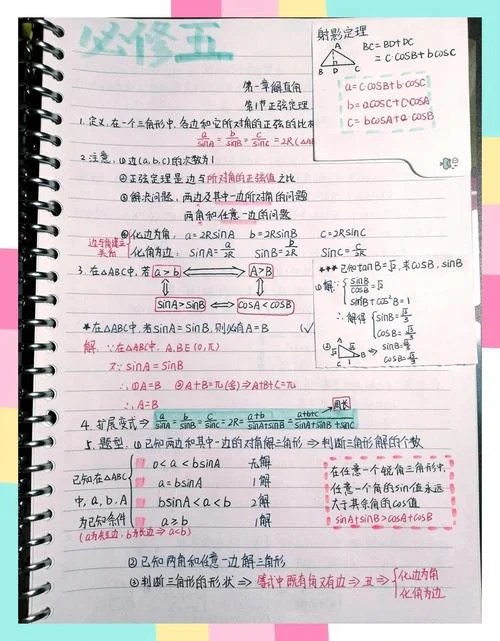 必修五
射影定理
A
B D C
BC=BD+DC
=c·cosB+b·cosC
a=c·cosB+b·cosC
b=acosC+c·cosA
c=bcosA+a·cosB
第一章解直角
第1节正弦定理
1.定义,在一个三角形中,各边和它所对角的正弦的比相
a/sinA=b/sinB=c/sinC=2R(△AB
2.注意,①边(a,b,c)的次数为1
②正弦定理是边与所对角的正弦值之比
③解决问题,两边及其中一边所对角的问题
两角和任意一边的问题
边与角建立关系
④化边为角:a=2RsinA b=2RsinB c=2RsinC
化角为边:sinA=a/2R sinB=b/2R sinC=c/2R
3.在△ABC中,若 a>b ⟺ A>B
⇕ ⇕
sinA>sinB ⟺ cosA<cosB
***已知tanB=√2,求cosB,sinB
①解:{sinB/cosB=√2
sin²B+cos²B=1
∴解得{sinB=
cosB=
② A B
sinB=
cosB=
*在△ABC中,若sinA=sinB,则必有A=B (√
解:∵在△ABC中,A,B∈(0,π)
又∵sinA=sinB
∴①A=B ②A+B=π(舍)⇒A+B+C=π
∴A=B
周长
4.扩展变式⇒a/sinA=b/sinB=c/sinC=2R=a+b/sinA+sinB=a+b+c/sinA+sinB+sinC
5.题型,①已知两边和其中一边的对角解三角形⇒判断三角形解的个数
已知在△ABC中,a,b,A为已知条件
0<a<bsinA 无解
a=bsinA 1解
bsinA<a<b 2解
a≥b 1解
(a为对边,b为长边⇒a<b)
在任意一个锐角三角形中,
任意一个角的sin值永远
大于其余角的cos值
sinA+sinB>cosA+cosB
②已知两角和任意一边解三角形
③判断三角形的形状⇒等式中既有角又有边⇒丑⇒{化边为角
化角为边